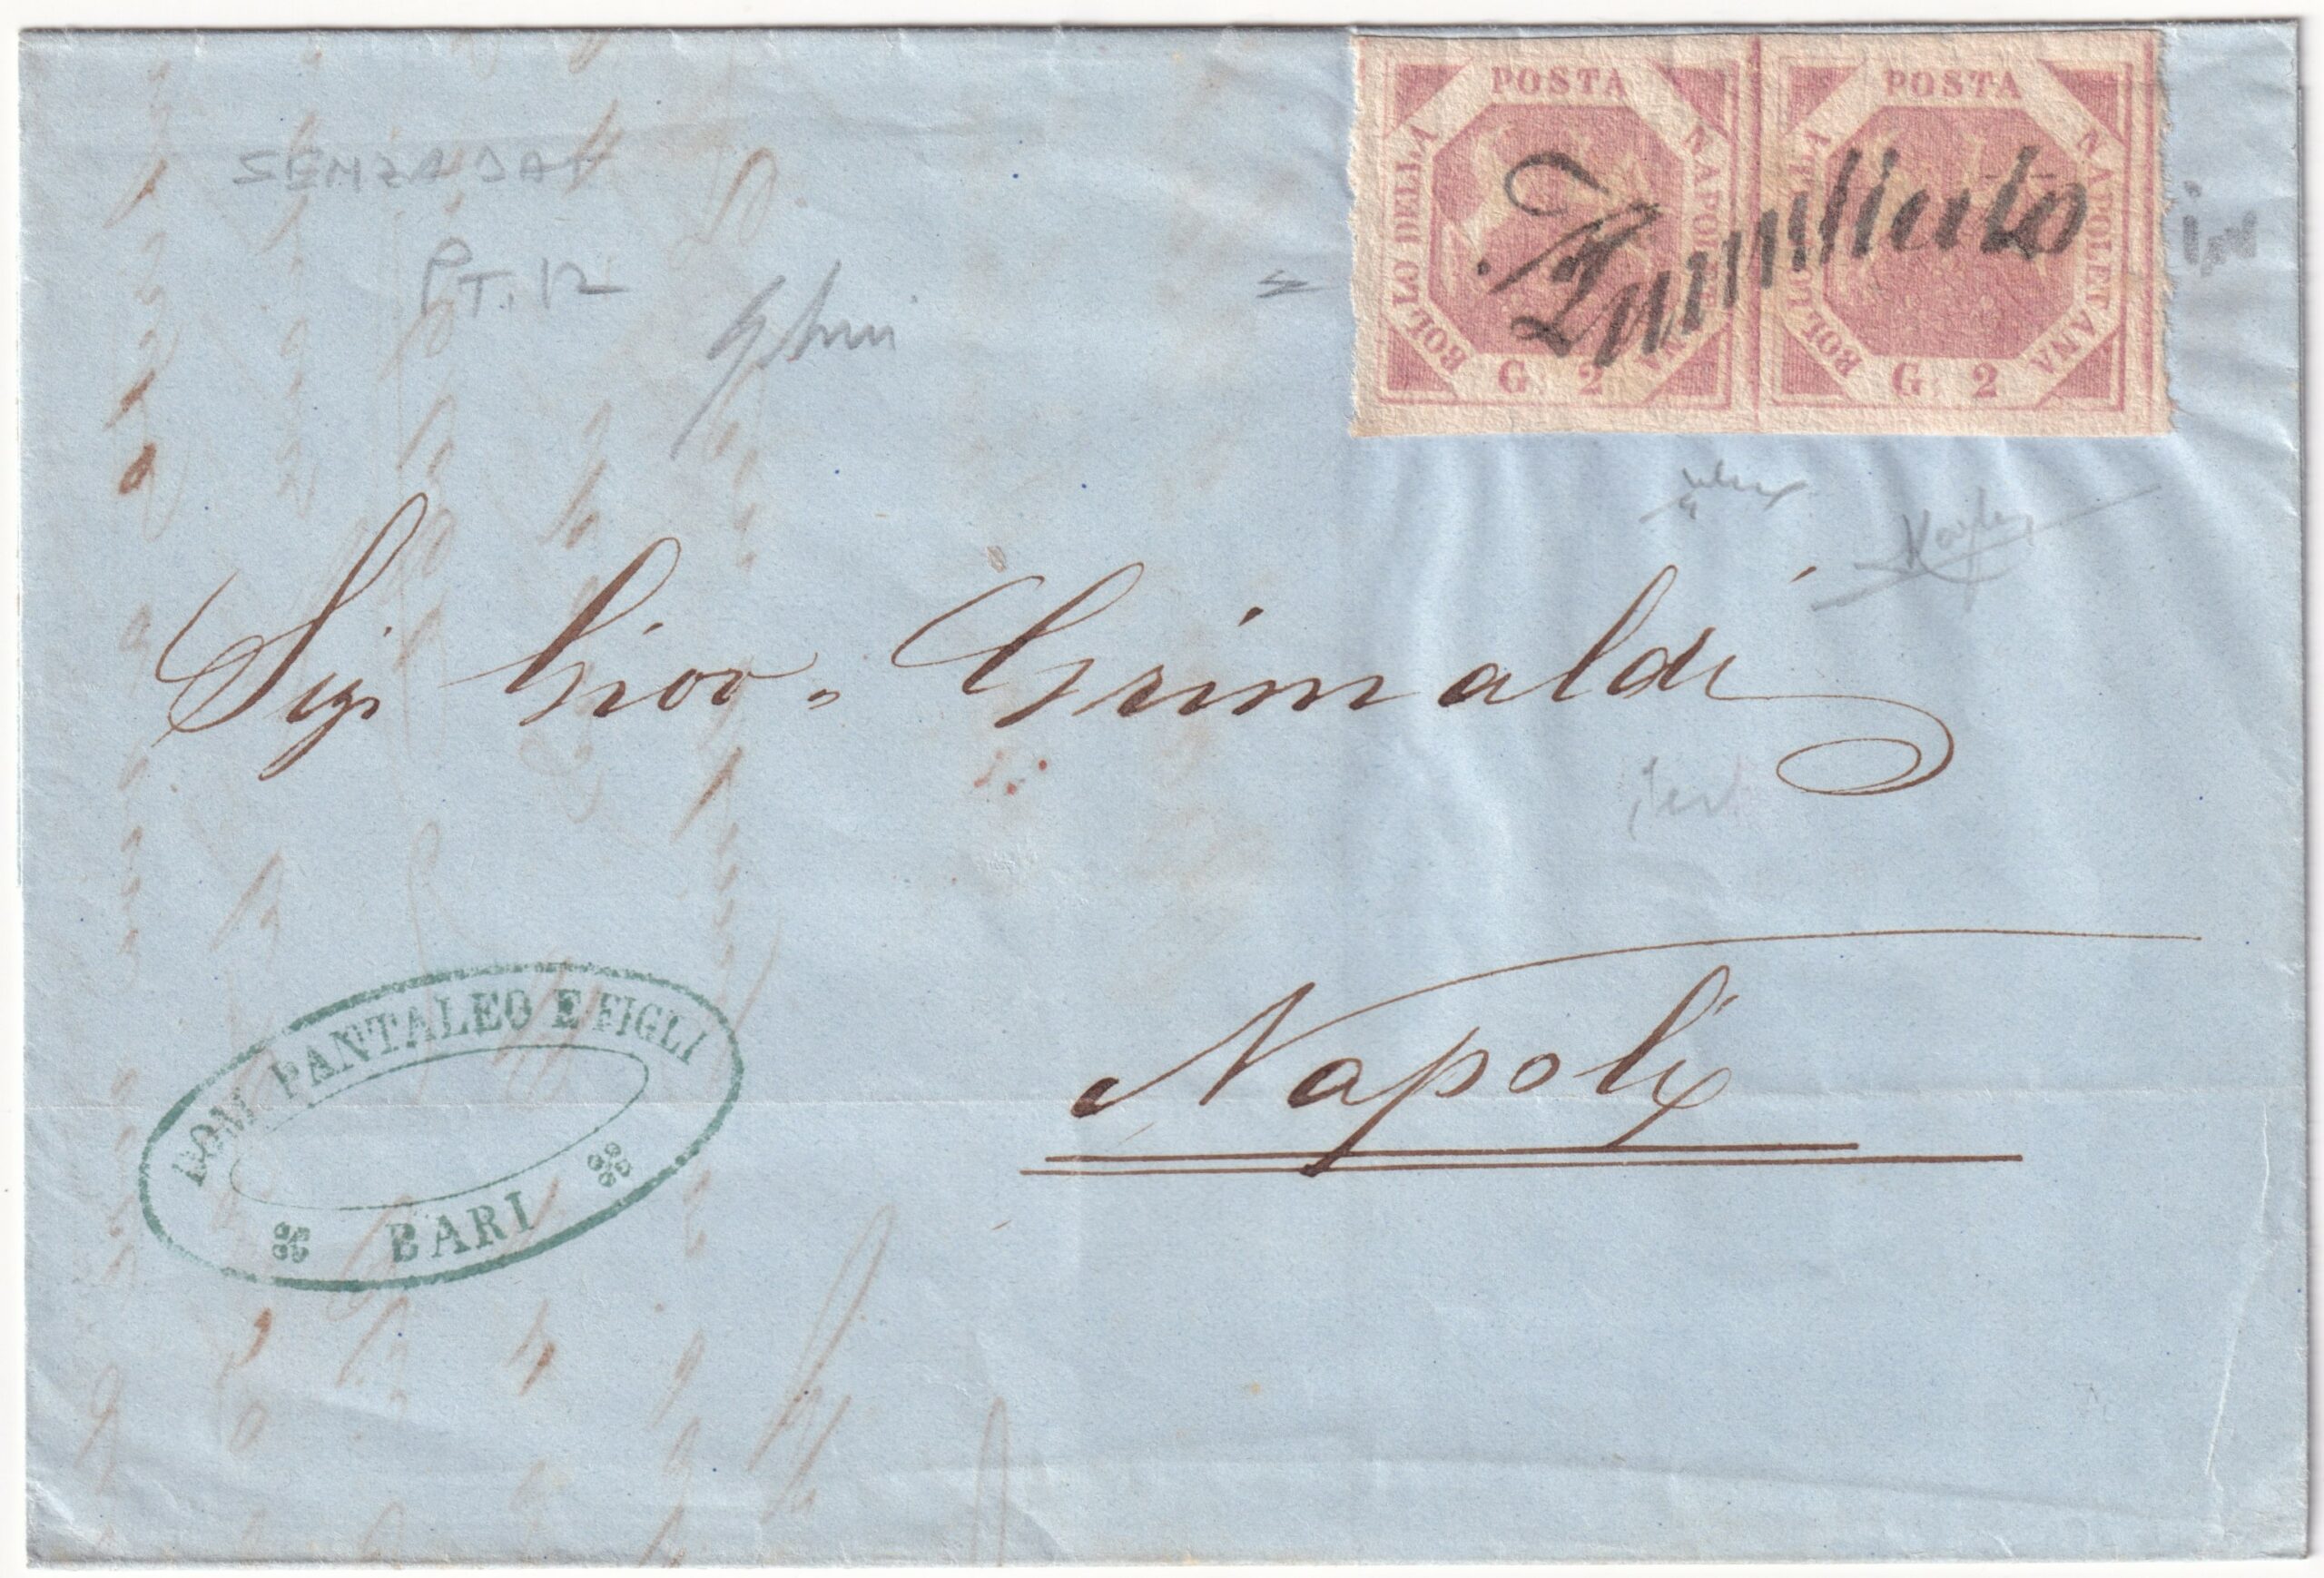 POSTA
BOLLO DELLA
NAPOLETANA
G. 2
POSTA
BOLLO DELLA
NAPOLETANA
G. 2
Annullato
SENZA DAT
PT. 12
Sigr Giov. Grimaldi
Napoli
DOM. PANTALEO E FIGLI
BARI